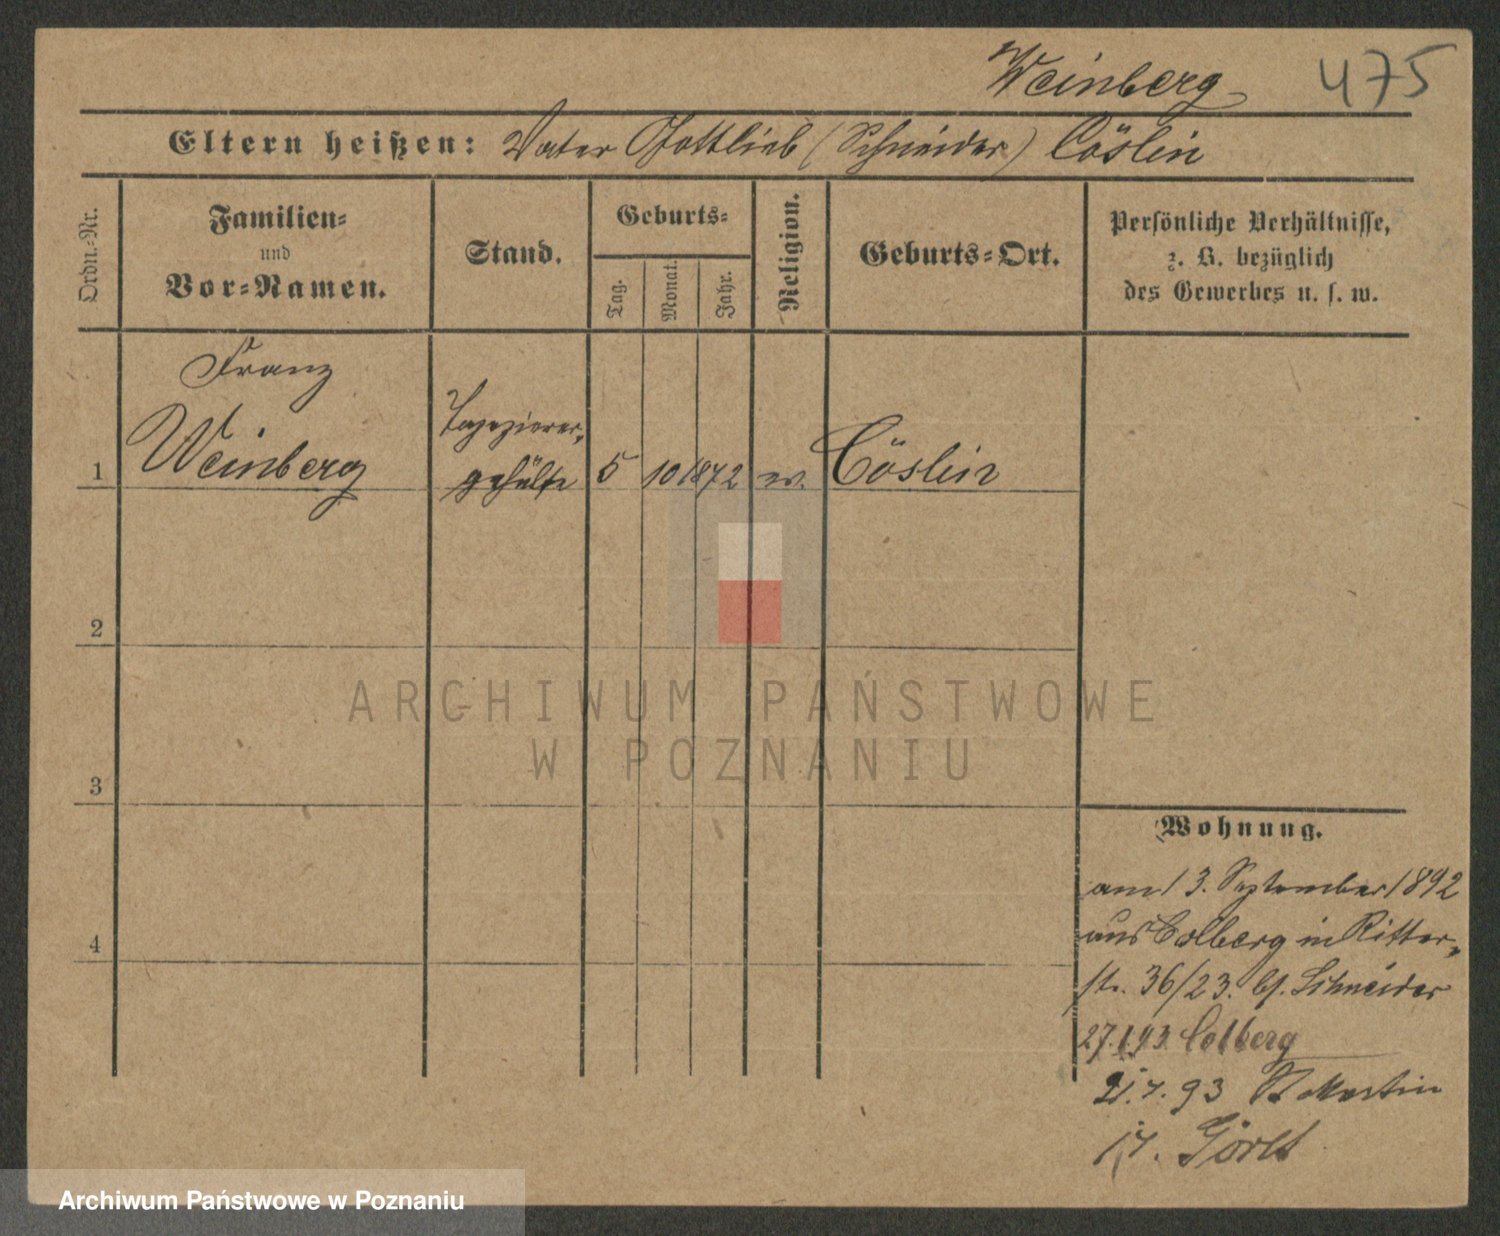 Weinberg 475
Eltern heißen: Vater Gottlieb (Schneider) Cöslin
Ordn.-Nr.
Familien-
und
Vor-Namen.
Stand.
Geburts-
Tag.
Monat.
Jahr.
Religion.
Geburts-Ort.
Persönliche Verhältnisse,
z. B. bezüglich
des Gewerbes u. s. w.
Franz
1 Weinberg Tapezierer-
gehülfe 5 10 1872 ev. Cöslin
2
3
4
ARCHIWUM PAŃSTWOWE
W POZNANIU
Wohnung.
am 13. September 1892
aus Colberg in Ritter-
str. 36/23. bf. Schneider
27.1.93. Colberg
21.7.93 St Martin
17.
Archiwum Państwowe w Poznaniu